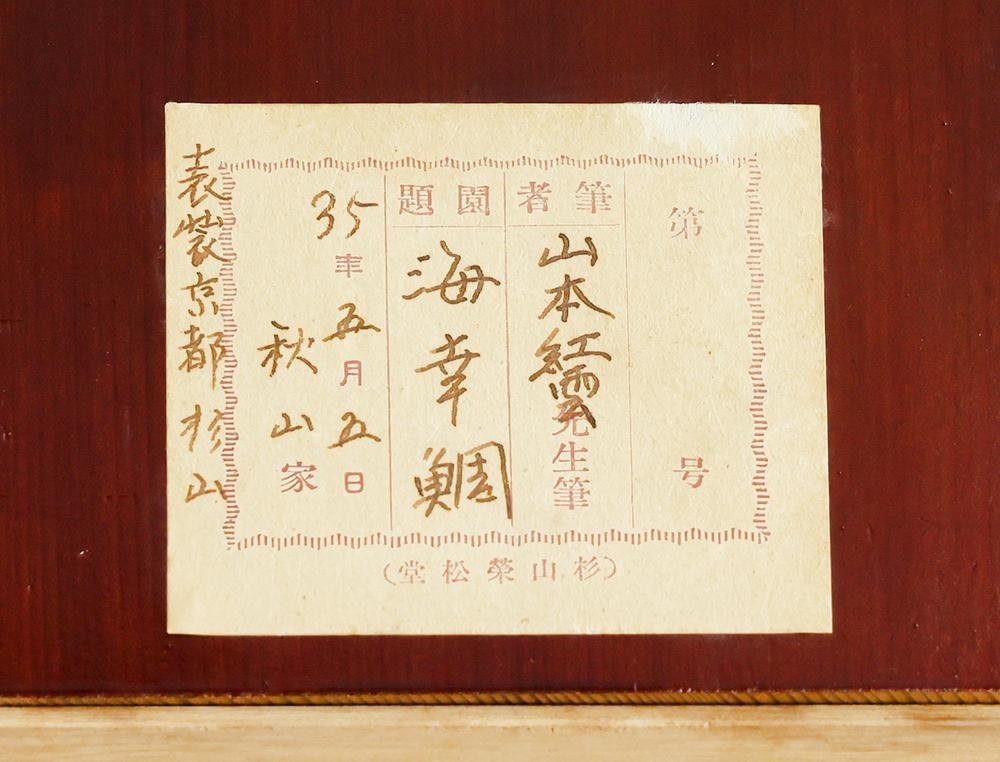 第 号
筆者
山本紅雲先生筆
園題
海幸鯛
35年五月五日
秋山家
表装京都杉山
(杉山榮松堂)